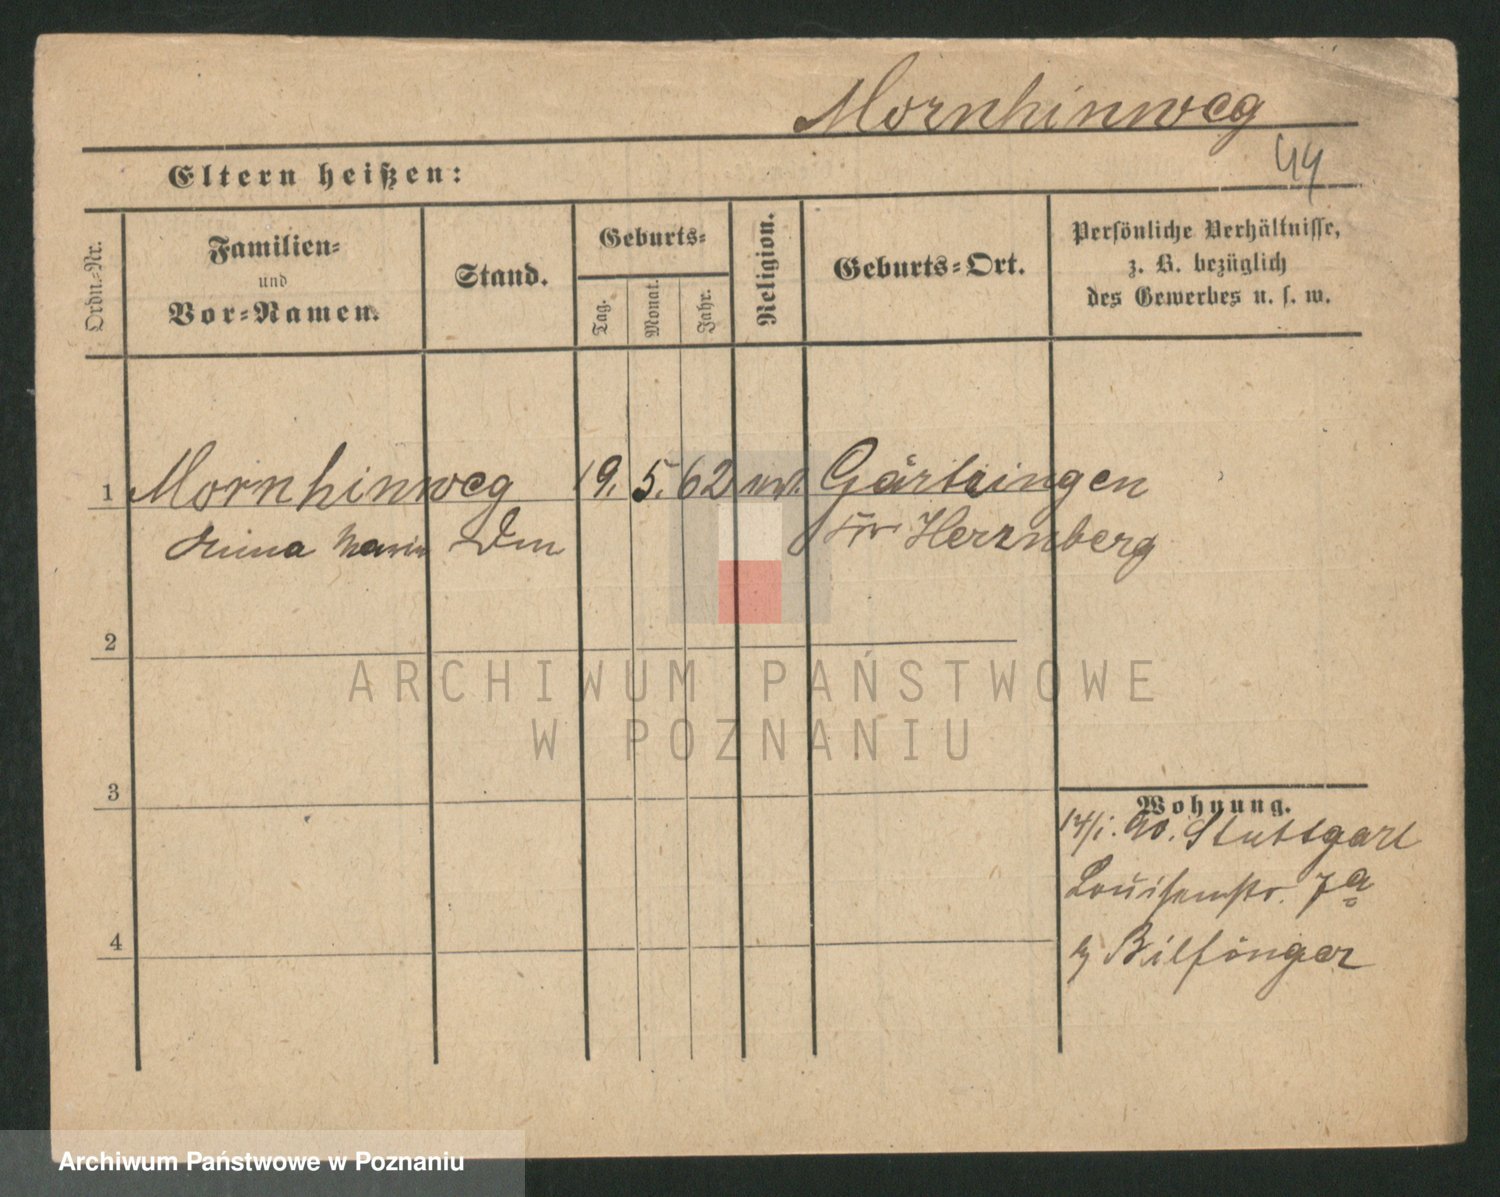 Mornhinweg
44
Eltern heißen:
Ordn.-Nr.
Familien-
und
Vor-Namen.
Stand.
Geburts-
Tag.
Monat.
Jahr.
Religion.
Geburts-Ort.
Persönliche Verhältnisse,
z. B. bezüglich
des Gewerbes u. s. w.
1 Mornhinweg 19. 5. 62 Gärtringen
Anna Maria Herrnberg
2
ARCHIWUM PAŃSTWOWE
W POZNANIU
3
Wohnung.
17/1. 90. Stuttgart
Louisenstr. 7a
4
Bilfinger
Archiwum Państwowe w Poznaniu